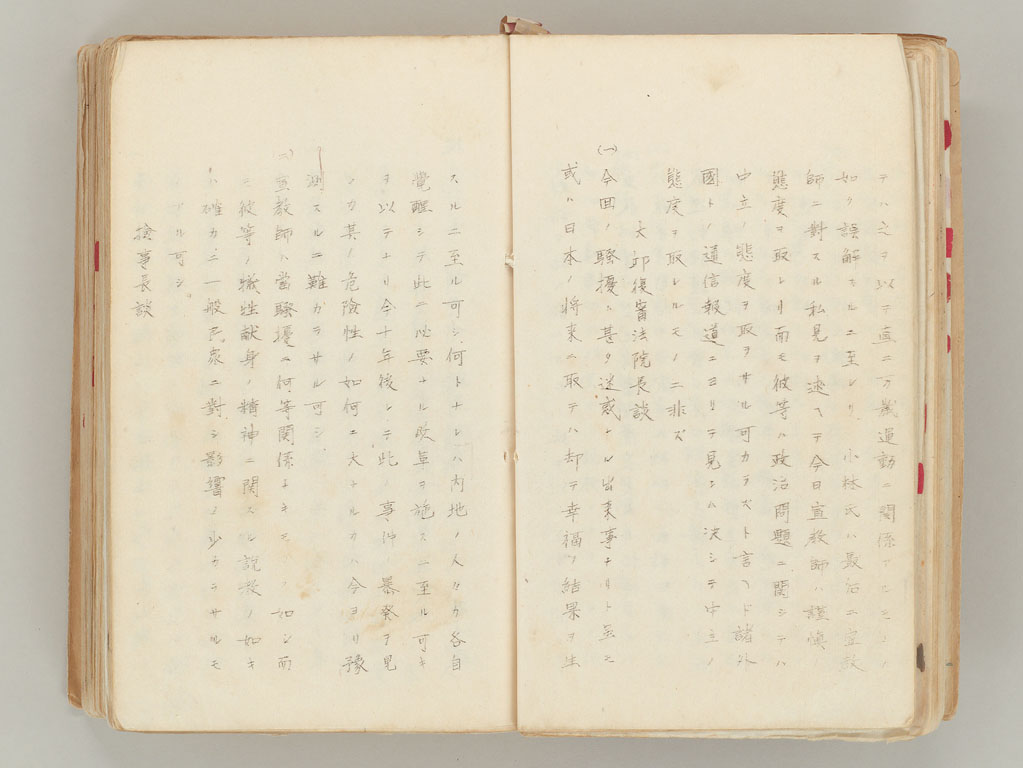 テハ之ヲ以テ直ニ 運動ニ関係アルモノノ
如ク誤解スルニ至レリ 小林氏ハ最后ニ宣教
師ニ對スル私見ヲ述ヘテ今日宣教師ハ謹慎
態度ヲ取レリ而モ彼等ハ政治問題ニ関シテハ
中立ノ態度ヲ取ラサル可カラズト言ヘド諸外
國トノ通信報道ニヨリテ見ルニ決シテ中立ノ
態度ヲ取レルモノニ非ズ
大邱復審法院長談
(一)今回ノ騒擾ハ甚タ迷惑ナル出来事ナリト虽モ
或ハ日本ノ将来ニ取テハ却テ幸福ノ結果ヲ生
スルニ至ル可シ何トナレハ内地ノ人々カ各自
覚醒シテ此ニ必要ナル改革ヲ施スニ至ル可キ
ヲ以テナリ今十年後レテ此ノ事件ノ暴発ヲ見
ンカ其ノ危険性ノ如何ニ大ナルカハ今ヨリ豫
測スルニ難カラサル可シ
(二)宣教師ハ當騒擾ニ何等関係ナキモノノ如シ而
シ彼等ノ犠牲献身ノ精神ニ関スル説教ノ如キ
ハ確カニ一般民衆ニ對シ影響ノ少カラサルモ
ノアル可シ。
検事長談